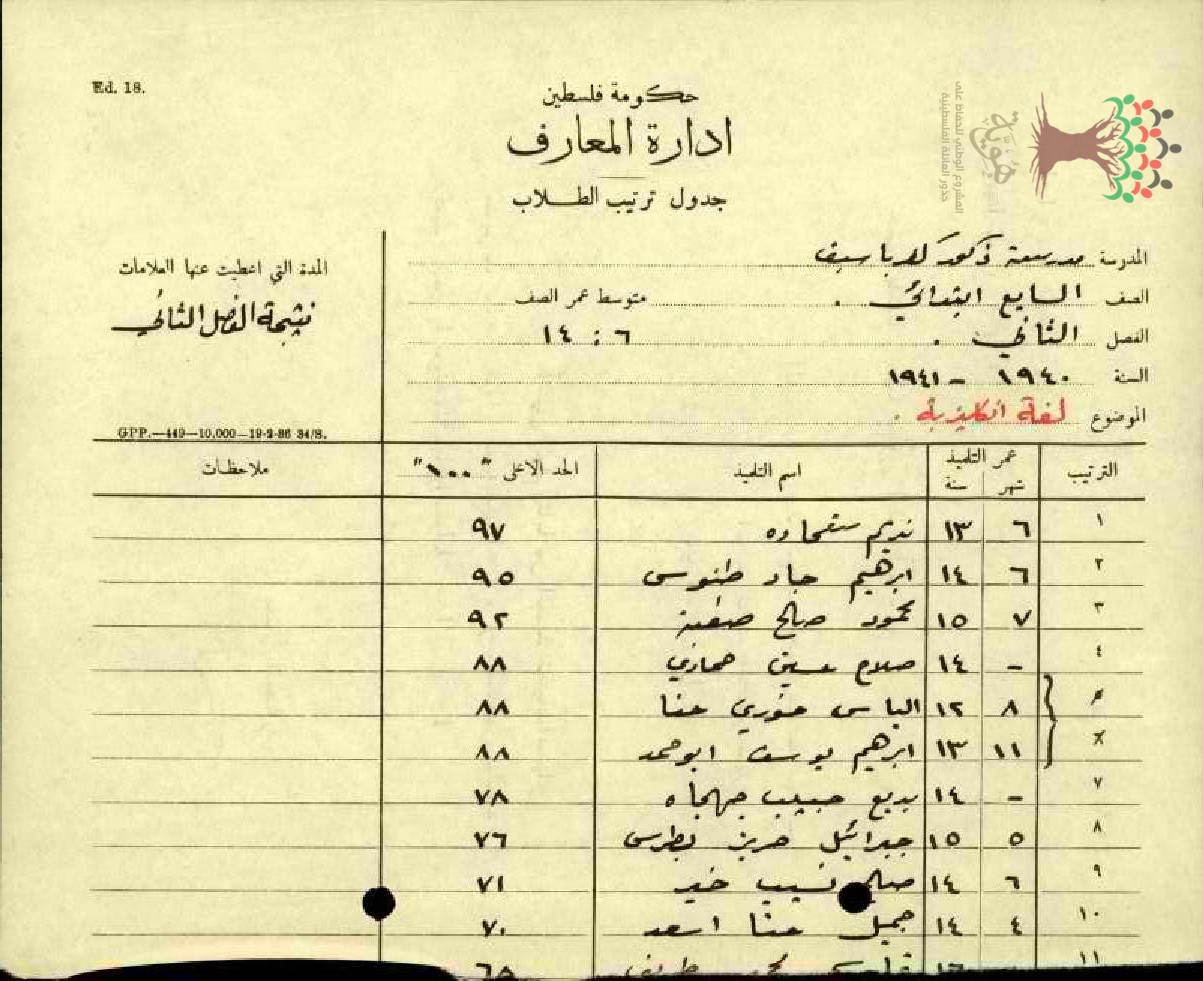 Ed. 18.
حكومة فلسطين
ادارة المعارف
جدول ترتيب الطلاب
هُوِيَّة
المشروع الوطني للحفاظ على
جذور العائلة الفلسطينية
المدرسة مدرسة ذكور
الصف السابع ابتدائي . متوسط عمر الصف
الفصل الثاني . ٦ : ١٤
السنة ١٩٤٠ – ١٩٤١
الموضوع لغة انكليزية .
المدة التي اعطيت عنها العلامات
نتيجة الفصل الثاني
GPP.—449—10,000—19-2-36 34/S.
الترتيب عمر التلميذ شهر سنة اسم التلميذ الحد الاعلى "١٠٠" ملاحظات
١ ٦ ١٣ نديم ٩٧
٢ ٦ ١٤ ابرهيم جاد طنوس ٩٥
٣ ٧ ١٥ محمود صالح ٩٢
٤ – ١٤ صلاح حسين ٨٨
٨ ١٢ الياس خوري حنا ٨٨
١١ ١٣ ابرهيم يوسف ابوحمد ٨٨
٧ – ١٤ بديع حبيب جهجاه ٧٨
٨ ٥ ١٥ جبرائيل بطرس ٧٦
٩ ٦ ١٤ صالح نسيب خير ٧١
١٠ ٤ ١٤ جميل حنا اسعد ٧٠
١١